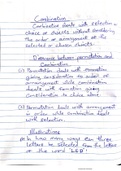 Combination
Combination deals with selection
choice of objects without considering
the order or arrangement of the
selected or chosen objects.
Difference between permutation and
Combination
(i) Permutation deals with
giving consideration to order or
arrangement while combination
deals with
giving
consideration to choice alone.
(ii) Permutation deals with arrangement
in order while combination deals
with selection.
Illustrations
In how many ways can three
letters be selected from the letters
of the word